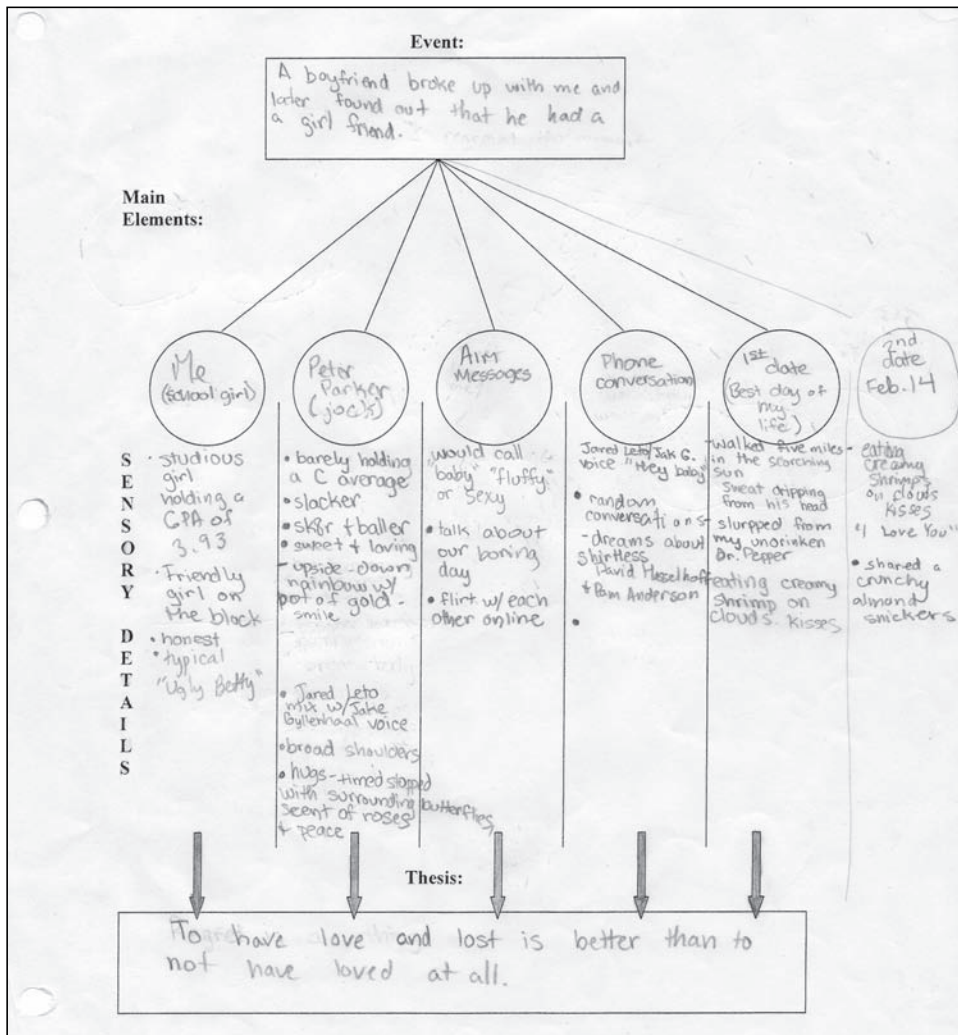 Event:
A boyfriend broke up with me and
later found out that he had a
a girl friend.
Main
Elements:
Me
(school girl)
Peter
Parker
(jock)
Aim
Messages
Phone
conversation
1st
date
(Best day of
my
life)
2nd
date
Feb. 14
SENSORY DETAILS
• studious
girl
holding a
GPA of
3.93
• Friendly
girl on
the block
• honest
• typical
"Ugly Betty"
• barely holding
a C average
• slacker
• sk8r + baller
• sweet + loving
- upside-down
rainbow w/
pot of gold -
smile
• Jared Leto
mix w/ Jake
Gyllenhaal voice
• broad shoulders
• hugs - timed stopped
with surrounding butterflies,
scent of roses
+ peace
would call
"baby" "fluffy"
or sexy
• talk about
our boring
day
• flirt w/ each
other online
Jared Leto/Jak G.
voice "Hey baby"
• random
conversations
- dreams about
shirtless
David Hasselhoff
+ Pam Anderson
•
- walked five miles
in the scorching
sun
sweat dripping
from his head
- slurpped from
my undrinken
Dr. Pepper
eating creamy
shrimp on
clouds - kisses
- eating
creamy
shrimps
on clouds
kisses
"I Love You"
• shared a
crunchy
almond
snickers
Thesis:
To have love and lost is better than to
not have loved at all.